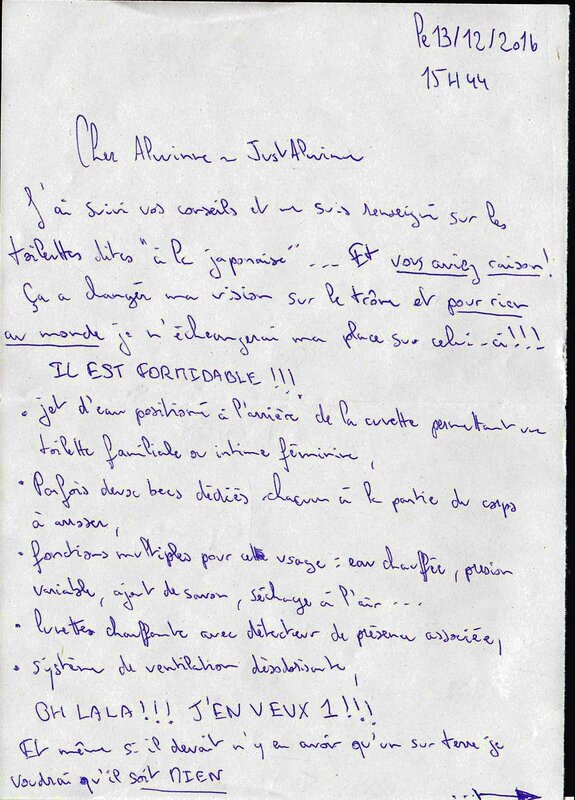 Le 13/12/2016
15H44
Cher Alwinne ~ JustAlwinne
J'ai suivi vos conseils et me suis renseigné sur les
toilettes dites "à la japonaise" ... Et vous aviez raison!
Ça a changé ma vision sur le trône et pour rien
au monde je n'échangerai ma place sur celui-ci!!!
IL EST FORMIDABLE !!!
• jet d'eau positionné à l'arrière de la cuvette permettant une
toilette familiale ou intime féminine,
• Parfois deux becs dédiés chacun à la partie du corps
à arroser,
• fonctions multiples pour cet usage : eau chauffée, pression
variable, ajout de savon, séchage à l'air ...
• lunettes chauffante avec détecteur de présence associée,
• système de ventilation désodorisante,
OH LALA!!! J'EN VEUX 1!!!
Et même si il devait n'y en avoir qu'un sur terre je
voudrai qu'il soit MIEN